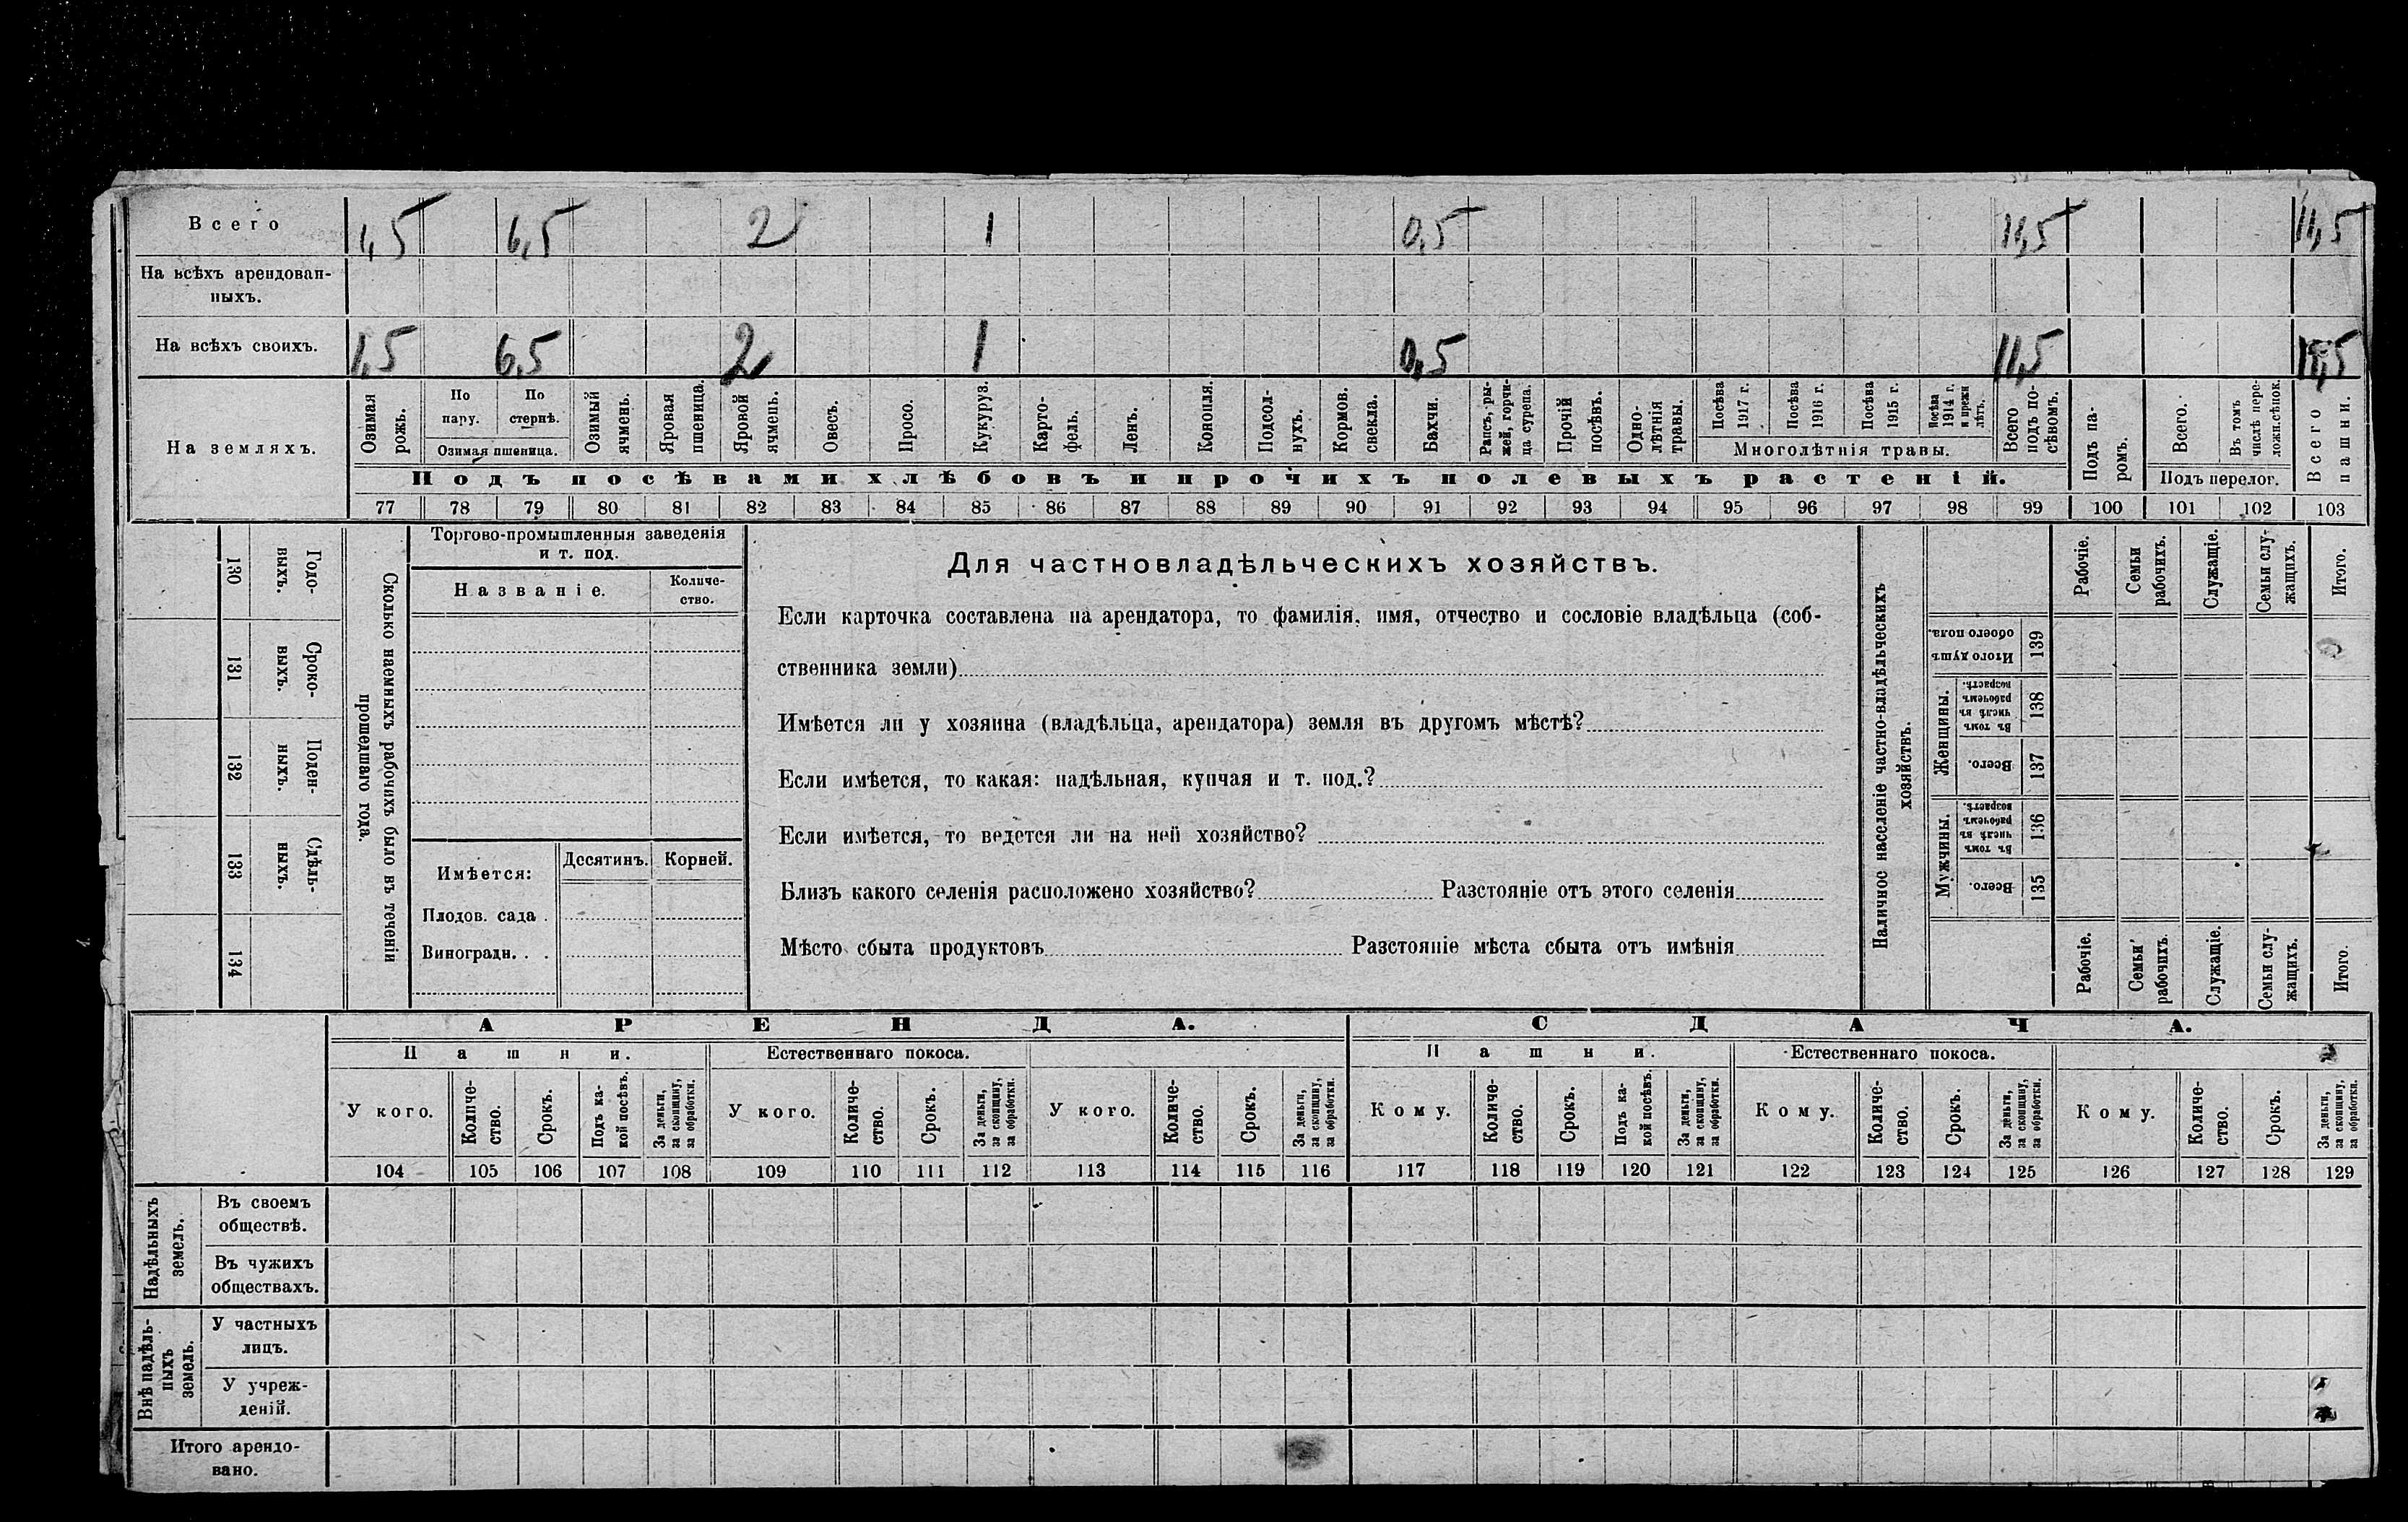 Всего 1,5 6,5 2 1 0,5 11,5 11,5
На всѣхъ арендован-
ныхъ.
На всѣхъ своихъ. 1,5 6,5 2 1 0,5 11,5 11,5
На земляхъ.
Озимая рожь.
По пару.
По стернѣ.
Озимая пшеница.
Озимый ячмень.
Яровая пшеница.
Яровой ячмень.
Овесъ.
Просо.
Кукуруз.
Карто-
фель.
Ленъ.
Конопля.
Подсол-
нухъ.
Кормов. свекла.
Бахчи.
Рапсъ, ры-
жей, горчи-
ца сурепа.
Прочій посѣвъ.
Одно-
лѣтнія травы.
Посѣва 1917 г.
Посѣва 1916 г.
Посѣва 1915 г.
Посѣва 1914 г. и прежн лѣтъ.
Многолѣтнія травы.
Всего подъ по-
сѣвомъ.
Подъ па-
ромъ.
Всего.
Въ томъ числѣ пере-
ложн. сѣнок.
Подъ перелог.
Всего пашни.
Подъ посѣвами хлѣбовъ и прочихъ полевыхъ растеній.
77 78 79 80 81 82 83 84 85 86 87 88 89 90 91 92 93 94 95 96 97 98 99 100 101 102 103
130 Годо-
выхъ.
131 Сроко-
выхъ.
132 Поден-
ныхъ.
133 Сдѣль-
ныхъ.
134
Сколько наемныхъ рабочихъ было въ теченіи
прошедшаго года.
Торгово-промышленныя заведенія
и т. под.
Названіе.
Количе-
ство.
Имѣется:
Десятинъ. Корней.
Плодов. сада .
Виноградн. . .
Для частновладѣльческихъ хозяйствъ.
Если карточка составлена на арендатора, то фамилія, имя, отчество и сословіе владѣльца (соб-
ственника земли)
Имѣется ли у хозяина (владѣльца, арендатора) земля въ другомъ мѣстѣ?
Если имѣется, то какая: надѣльная, купчая и т. под.?
Если имѣется, то ведется ли на ней хозяйство?
Близъ какого селенія расположено хозяйство? Разстояніе отъ этого селенія
Мѣсто сбыта продуктовъ Разстояніе мѣста сбыта отъ имѣнія
Наличное населеніе частно-владѣльческихъ
хозяйствъ.
Рабочіе.
Семьи рабочихъ.
Служащіе.
Семьи слу-
жащихъ.
Итого.
Итого душъ обоего пола. 139
Женщины.
Въ томъ числѣ въ рабочемъ возрастѣ. 138
Всего. 137
Мужчины.
Въ томъ числѣ въ рабочемъ возрастѣ. 136
Всего. 135
Рабочіе.
Семьи рабочихъ.
Служащіе.
Семьи слу-
жащихъ.
Итого.
АРЕНДА.
СДАЧА.
Пашни. Естественнаго покоса. Пашни. Естественнаго покоса.
У кого.
Количе-
ство.
Срокъ.
Подъ ка-
кой посѣвъ.
За деньги,
за скопщину,
за обработки.
У кого.
Количе-
ство.
Срокъ.
За деньги,
за скопщину,
за обработки.
У кого.
Количе-
ство.
Срокъ.
За деньги,
за скопщину,
за обработки.
Кому.
Количе-
ство.
Срокъ.
Подъ ка-
кой посѣвъ.
За деньги,
за скопщину,
за обработки.
Кому.
Количе-
ство.
Срокъ.
За деньги,
за скопщину,
за обработки.
Кому.
Количе-
ство.
Срокъ.
За деньги,
за скопщину,
за обработки.
104 105 106 107 108 109 110 111 112 113 114 115 116 117 118 119 120 121 122 123 124 125 126 127 128 129
Надѣльныхъ
земель.
Въ своемъ
обществѣ.
Въ чужихъ
обществахъ.
Внѣ надѣль-
ныхъ
земель.
У частныхъ
лицъ.
У учреж-
деній.
Итого арендо-
вано.